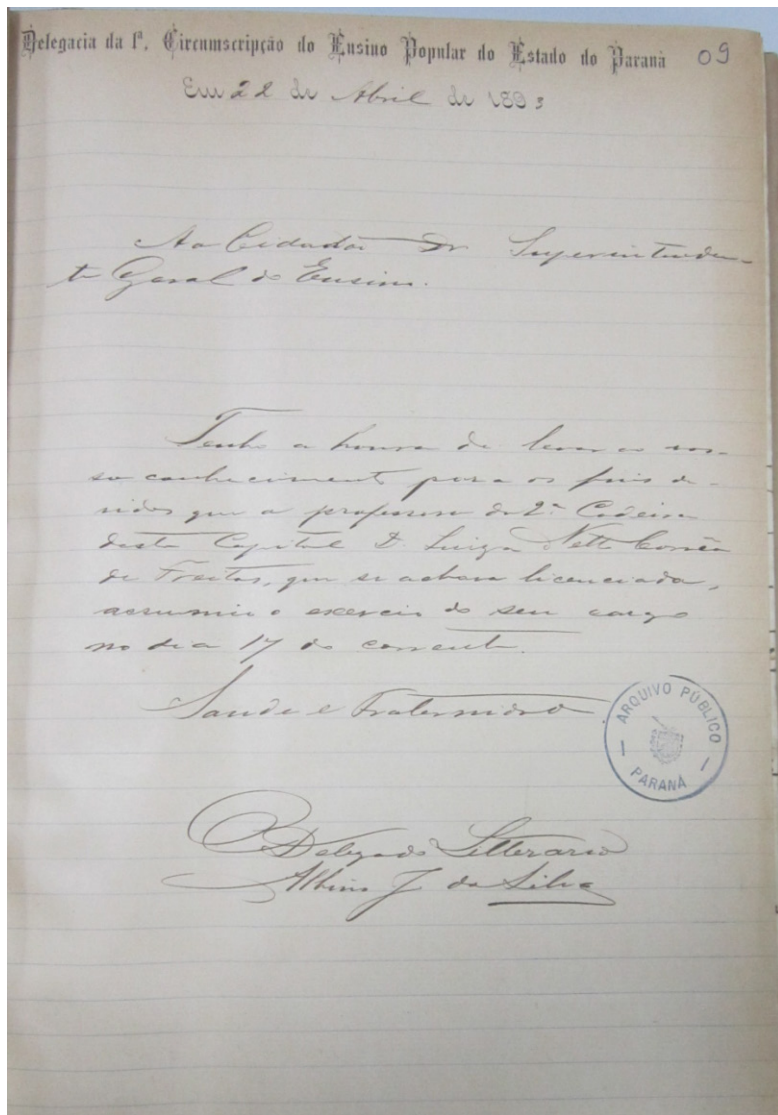 Delegacia da 1ª. Circumscripção do Ensino Popular do Estado do Paraná 09
Em 22 de Abril de 1893
Ao Cidadão Dr Superintenden-
te Geral do Ensino.
Tenho a honra de levar ao vos-
so conhecimento para os fins de-
vidos que a professora da 2ª Cadeira
desta Capital D. Luiza Netto Corrêa
de Freitas, que se achava licenciada,
assumio o exercicio do seu cargo
no dia 17 do corrente.
Saude e Fraternidade
ARQUIVO PÚBLICO
PARANÁ
O Delegado Litterario
Albino J da Silva